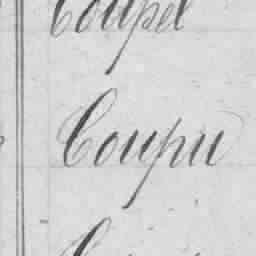 Coupel
Coupu